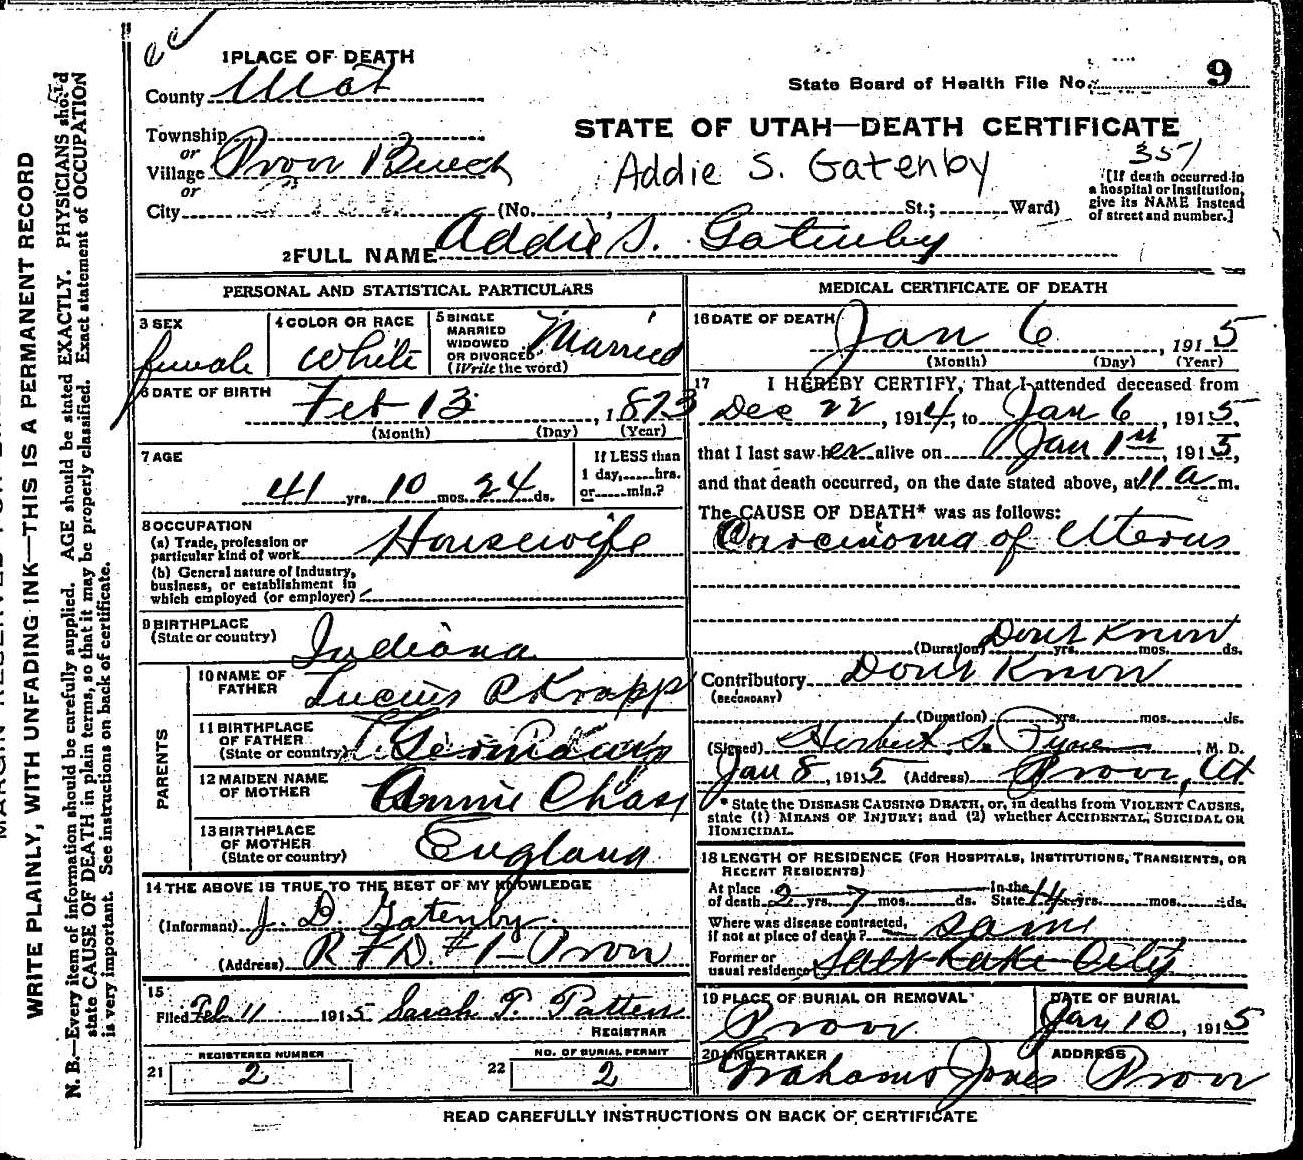 1 PLACE OF DEATH
County Utah
State Board of Health File No. 9
Township
or
Village Provo Bench
or
City
STATE OF UTAH—DEATH CERTIFICATE
Addie S. Gatenby
357
[If death occurred in a hospital or institution, give its NAME instead of street and number.]
(No. , St.; Ward)
2 FULL NAME Addie S. Gatenby
PERSONAL AND STATISTICAL PARTICULARS
3 SEX
female
4 COLOR OR RACE
White
5 SINGLE
MARRIED
WIDOWED
OR DIVORCED
(Write the word)
Married
6 DATE OF BIRTH
Feb 13 , 1873
(Month) (Day) (Year)
7 AGE
41 yrs. 10 mos. 24 ds.
If LESS than
1 day, hrs.
or min.?
8 OCCUPATION
(a) Trade, profession or
particular kind of work Housewife
(b) General nature of industry,
business, or establishment in
which employed (or employer)
9 BIRTHPLACE
(State or country)
Indiana
PARENTS
10 NAME OF
FATHER
Lucius P Knapp
11 BIRTHPLACE
OF FATHER
(State or country)
12 MAIDEN NAME
OF MOTHER
Annie Chase
13 BIRTHPLACE
OF MOTHER
(State or country)
England
14 THE ABOVE IS TRUE TO THE BEST OF MY KNOWLEDGE
(Informant) J. D. Gatenby
(Address) R F D. #1 - Provo
15
Filed Feb. 11 1915 Sarah T. Patten
REGISTRAR
21 REGISTERED NUMBER
2
22 NO. OF BURIAL PERMIT
2
MEDICAL CERTIFICATE OF DEATH
16 DATE OF DEATH
Jan 6 , 1915
(Month) (Day) (Year)
17 I HEREBY CERTIFY, That I attended deceased from
Dec 22 , 1914, to Jan 6 , 1915,
that I last saw her alive on Jan 1st , 1915,
and that death occurred, on the date stated above, at 11 a m.
The CAUSE OF DEATH* was as follows:
Carcinoma of Uterus
Dont Know
(Duration) yrs. mos. ds.
Contributory Dont Know
(SECONDARY)
(Duration) yrs. mos. ds.
(Signed) Herbert S. Pyne , M. D.
Jan 8 , 1915 (Address) Provo, Ut
* State the DISEASE CAUSING DEATH, or, in deaths from VIOLENT CAUSES,
state (1) MEANS OF INJURY; and (2) whether ACCIDENTAL, SUICIDAL OR
HOMICIDAL.
18 LENGTH OF RESIDENCE (FOR HOSPITALS, INSTITUTIONS, TRANSIENTS, OR
RECENT RESIDENTS)
At place
of death 2 yrs. 7 mos. ds. In the State 14 yrs. mos. ds.
Where was disease contracted,
if not at place of death? Same
Former or
usual residence Salt Lake City
19 PLACE OF BURIAL OR REMOVAL
Provo
DATE OF BURIAL
Jan 10 , 1915
20 UNDERTAKER
Grahams Jones
ADDRESS
Provo
READ CAREFULLY INSTRUCTIONS ON BACK OF CERTIFICATE
WRITE PLAINLY, WITH UNFADING INK—THIS IS A PERMANENT RECORD
N. B.—Every item of information should be carefully supplied. AGE should be stated EXACTLY. PHYSICIANS should
state CAUSE OF DEATH in plain terms, so that it may be properly classified. Exact statement of OCCUPATION
is very important. See instructions on back of certificate.